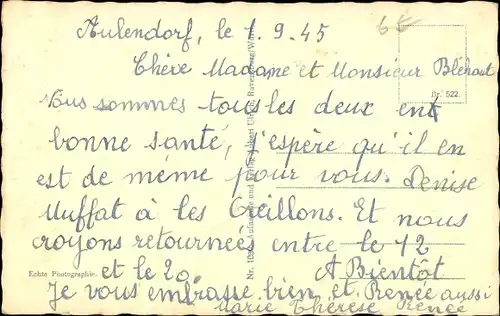 Aulendorf, le 1.9.45
6€
Chère Madame et Monsieur Bléhaut
Br. 522.
Nous sommes tous les deux en
bonne santé, j'espère qu'il en
est de même pour vous. Denise
Muffat à les Oreillons. Et nous
croyons retournées entre le 12
Echte Photographie. et le 20. A Bientôt
Je vous embrasse bien et Renée aussi
Marie Thérèse Renée